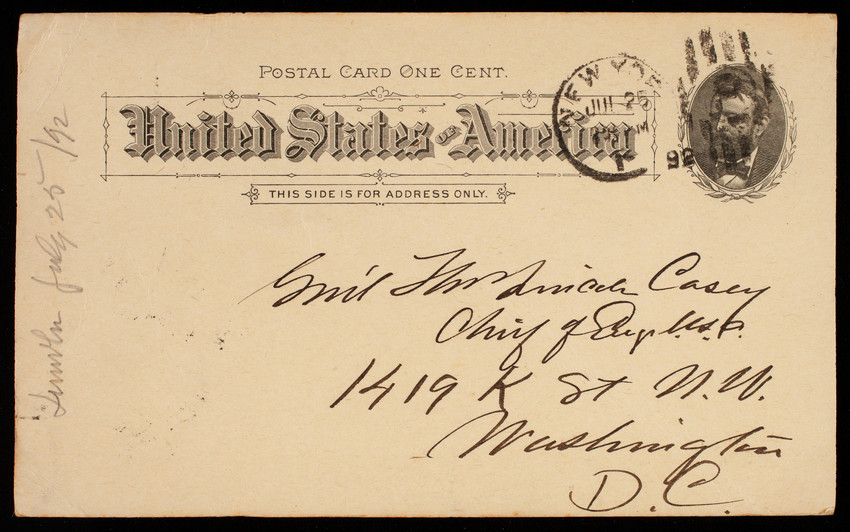 POSTAL CARD ONE CENT.
United States of America
THIS SIDE IS FOR ADDRESS ONLY.
NEW YORK
JUL 25
PM
92
Genl Thos Lincoln Casey
Chief of Eng. U.S.A.
1419 K St N.W.
Washington
D.C.
Lincoln July 25/92